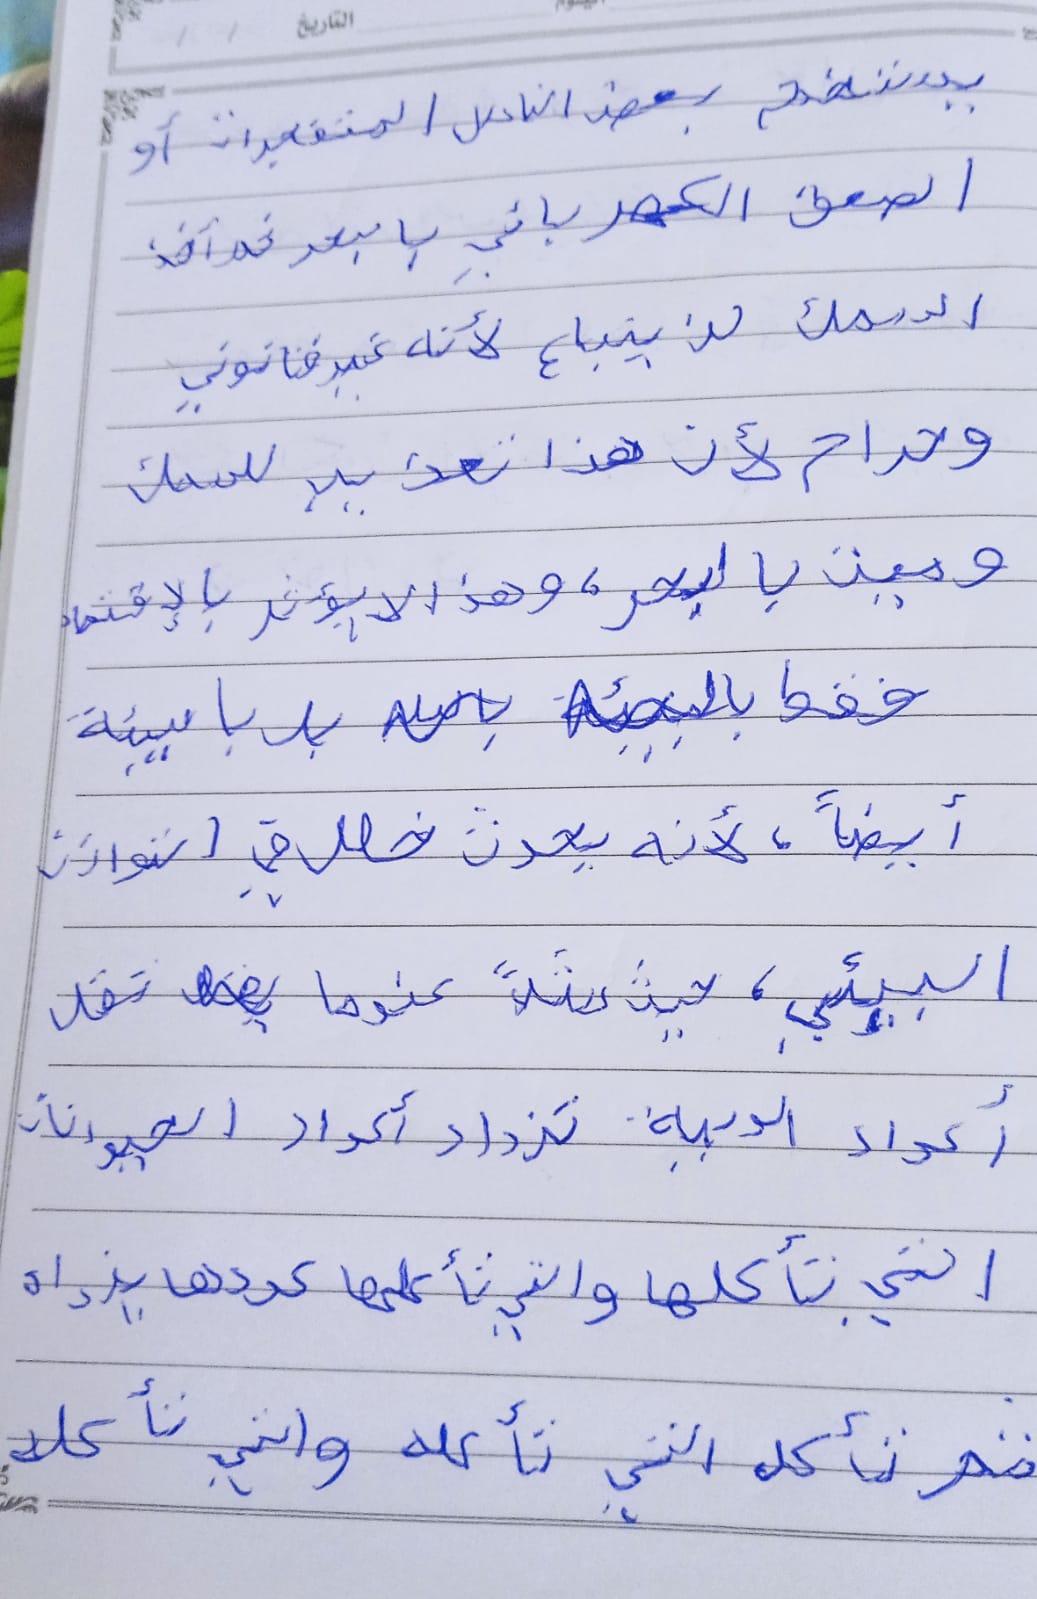 التاريخ / /
يستخدم بعض الناس المتفجرات أو
الصعق الكهربائي بالبحر
السمك لا ينباع لأنه غير قانوني
وحرام لأن هذا تعذيب للسمك
وميت بالبحر، وهذا لا يؤثر بالإقتصاد
فقط بل بابيئة
أيضاً، لأنه يحدث خطل في التوازن
البيئي، حيث مثلاً عندما تقل
أعداد تزداد أعداد الحيوانات
التي تأكلها والتي تأكلها عددها يزداد
تأكل التي تأكله والتي تأكل